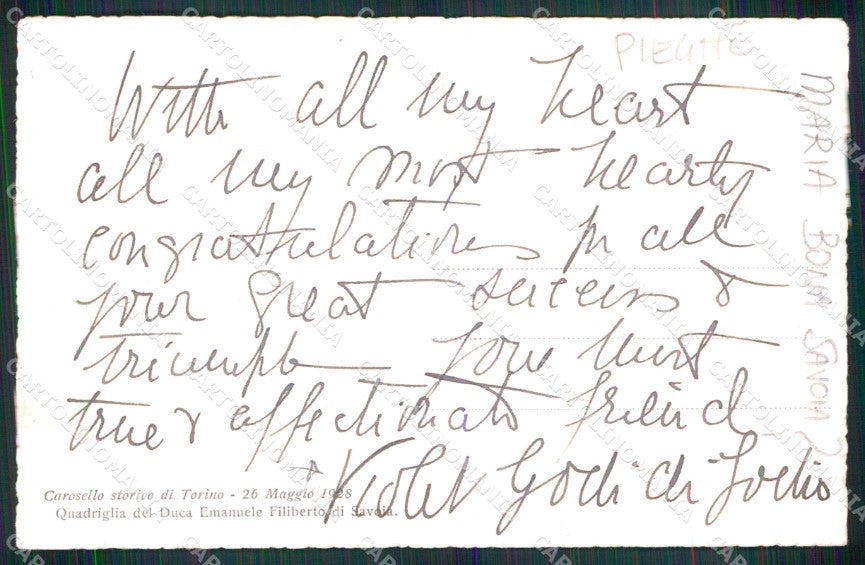 PIEGHE
With all my heart
all my most hearty
congratulations for all
your great success &
triumph your most
true & affectionate friend
Violet Godi di Godio
Carosello storico di Torino - 26 Maggio 1928
Quadriglia del Duca Emanuele Filiberto di Savoia.
MARIA BONA SAVOIA ?
CARTOLINOMANIA